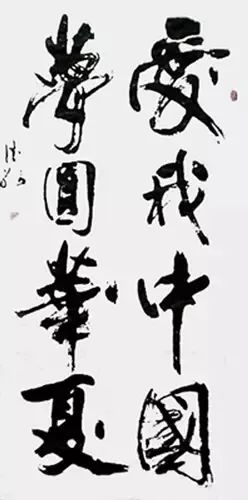 愛我中國
夢圓華夏